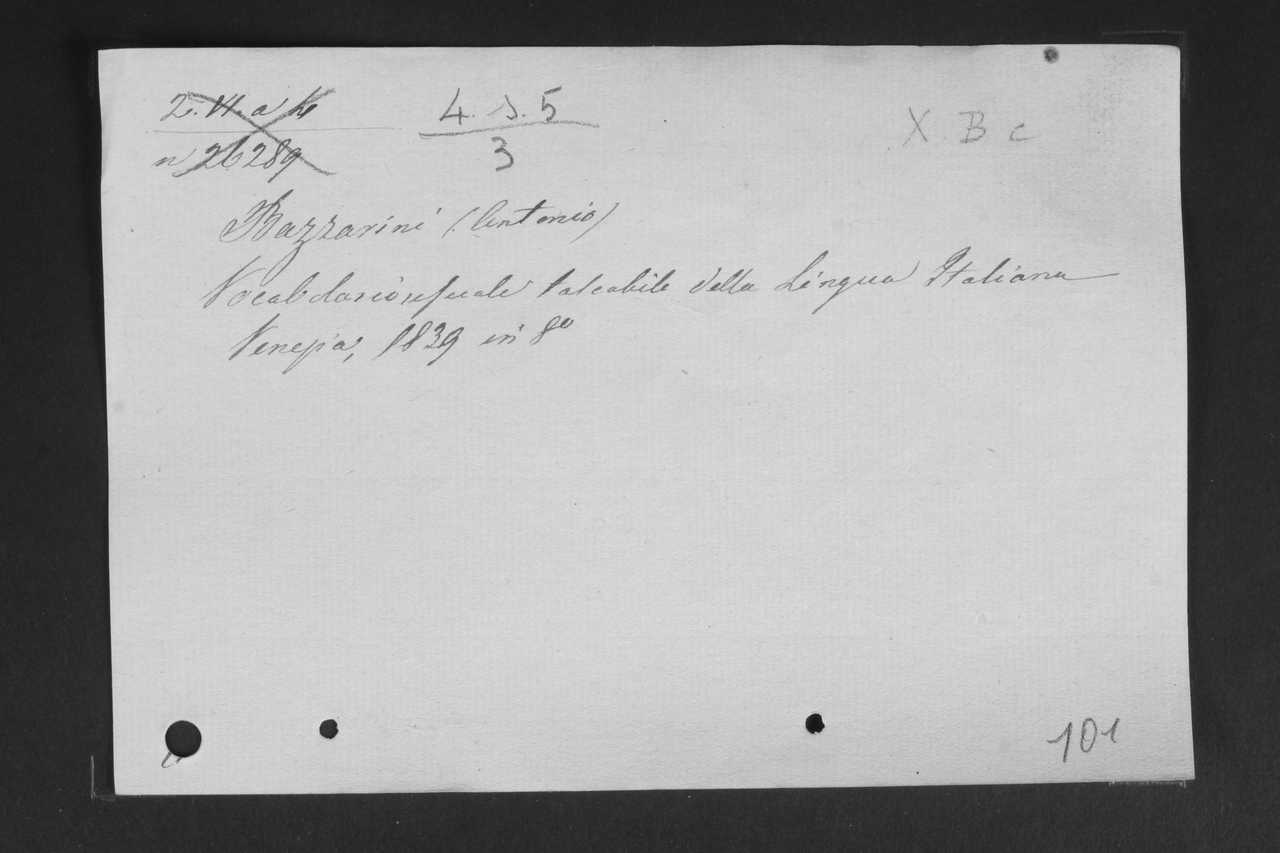 2. VI. a 4
n 26289
4. D. 5
3
X B c
Bazzarini (Antonio)
Vocabolario usuale tascabile della Lingua Italiana
Venezia, 1839 in 8º
101